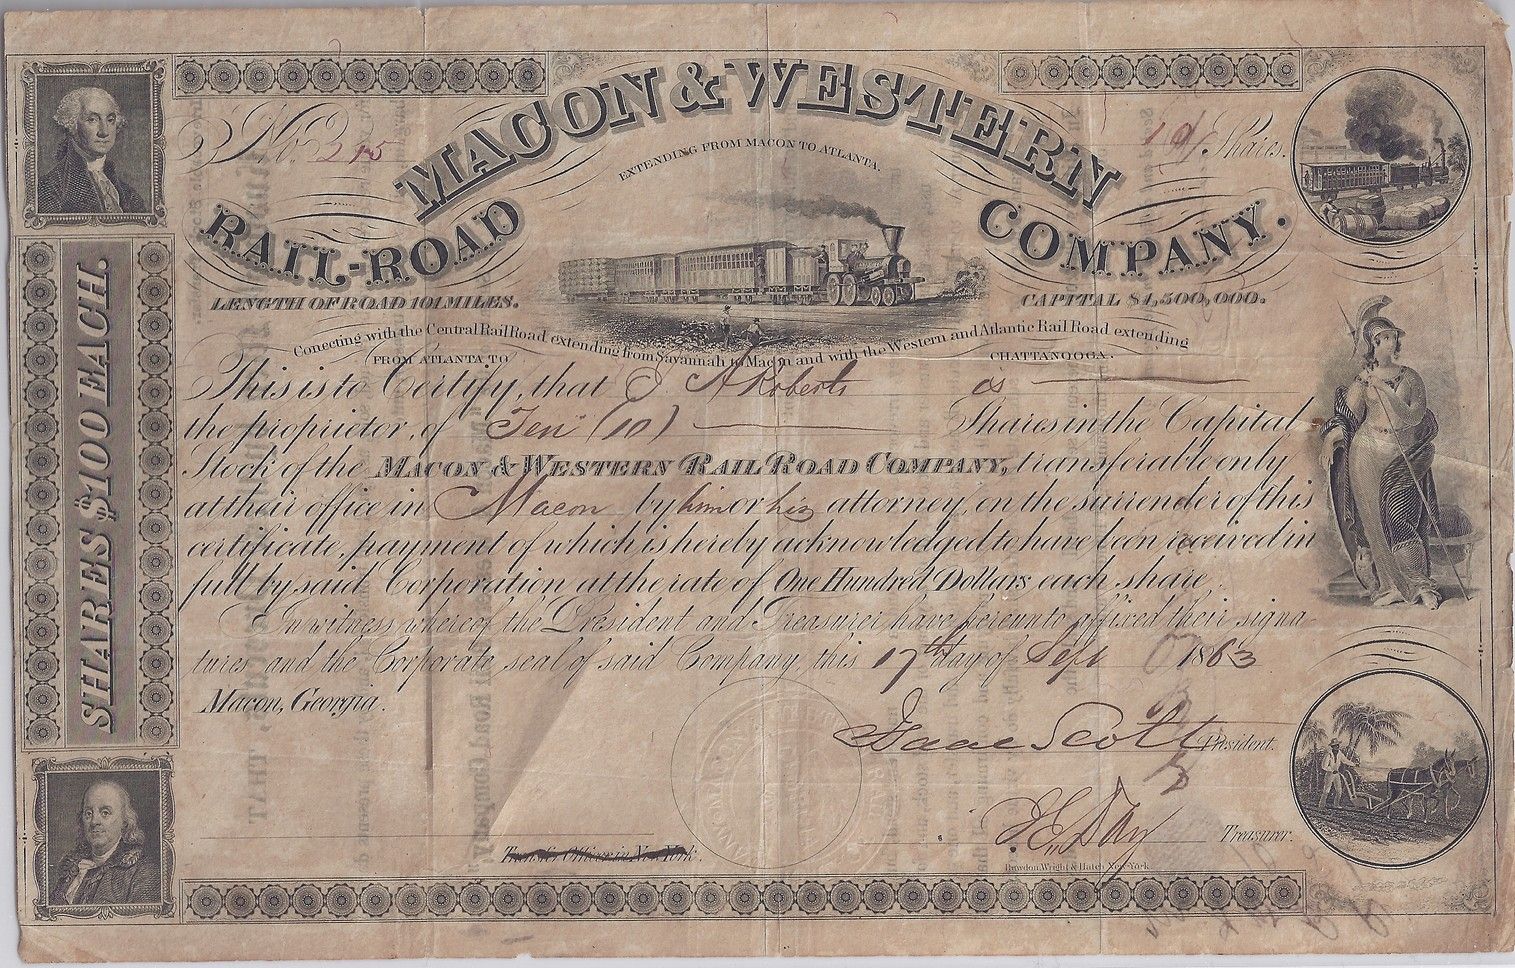 MACON & WESTERN
No. 215
10/ Shares.
EXTENDING FROM MACON TO ATLANTA.
RAIL-ROAD COMPANY.
LENGTH OF ROAD 101 MILES.
CAPITAL $1,500,000.
Conecting with the Central Rail Road extending from Savannah to Macon and with the Western and Atlantic Rail Road extending
FROM ATLANTA TO CHATTANOOGA.
SHARES $100 EACH.
This is to Certify, that A Roberts is
the proprietor, of Ten (10) Shares in the Capital
Stock of the MACON & WESTERN RAIL ROAD COMPANY, transferable only
at their office in Macon by him or his attorney, on the surrender of this
certificate, payment of which is hereby acknowledged to have been received in
full by said Corporation at the rate of One Hundred Dollars each share.
In witness whereof the President and Treasurer have hereunto affixed their signa-
tures and the Corporate seal of said Company this 17th day of Sept 1863
Macon, Georgia.
Isaac Scott President.
Treasurer.
Transfer Officer in New York.
Rawdon Wright & Hatch New-York